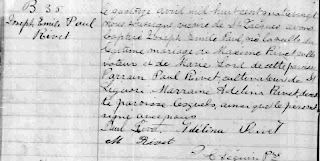 B 35
Joseph Emile Paul
Rivet
Le quatorze avril mil huit cent quatre vingt
nous soussigné vicaire de St Jacques avons
baptisé Joseph Emile Paul né la veille
légitime mariage de Maxime Rivet culti
vateur et de Marie Foret de cette paroisse
Parrain Paul Rivet, cultivateur de St
Liguori Marraine Adelina Rivet de
te paroisse lesquels, ainsi que le père ont
signé avec nous
Paul Rivet, Adélina Rivet
M Rivet